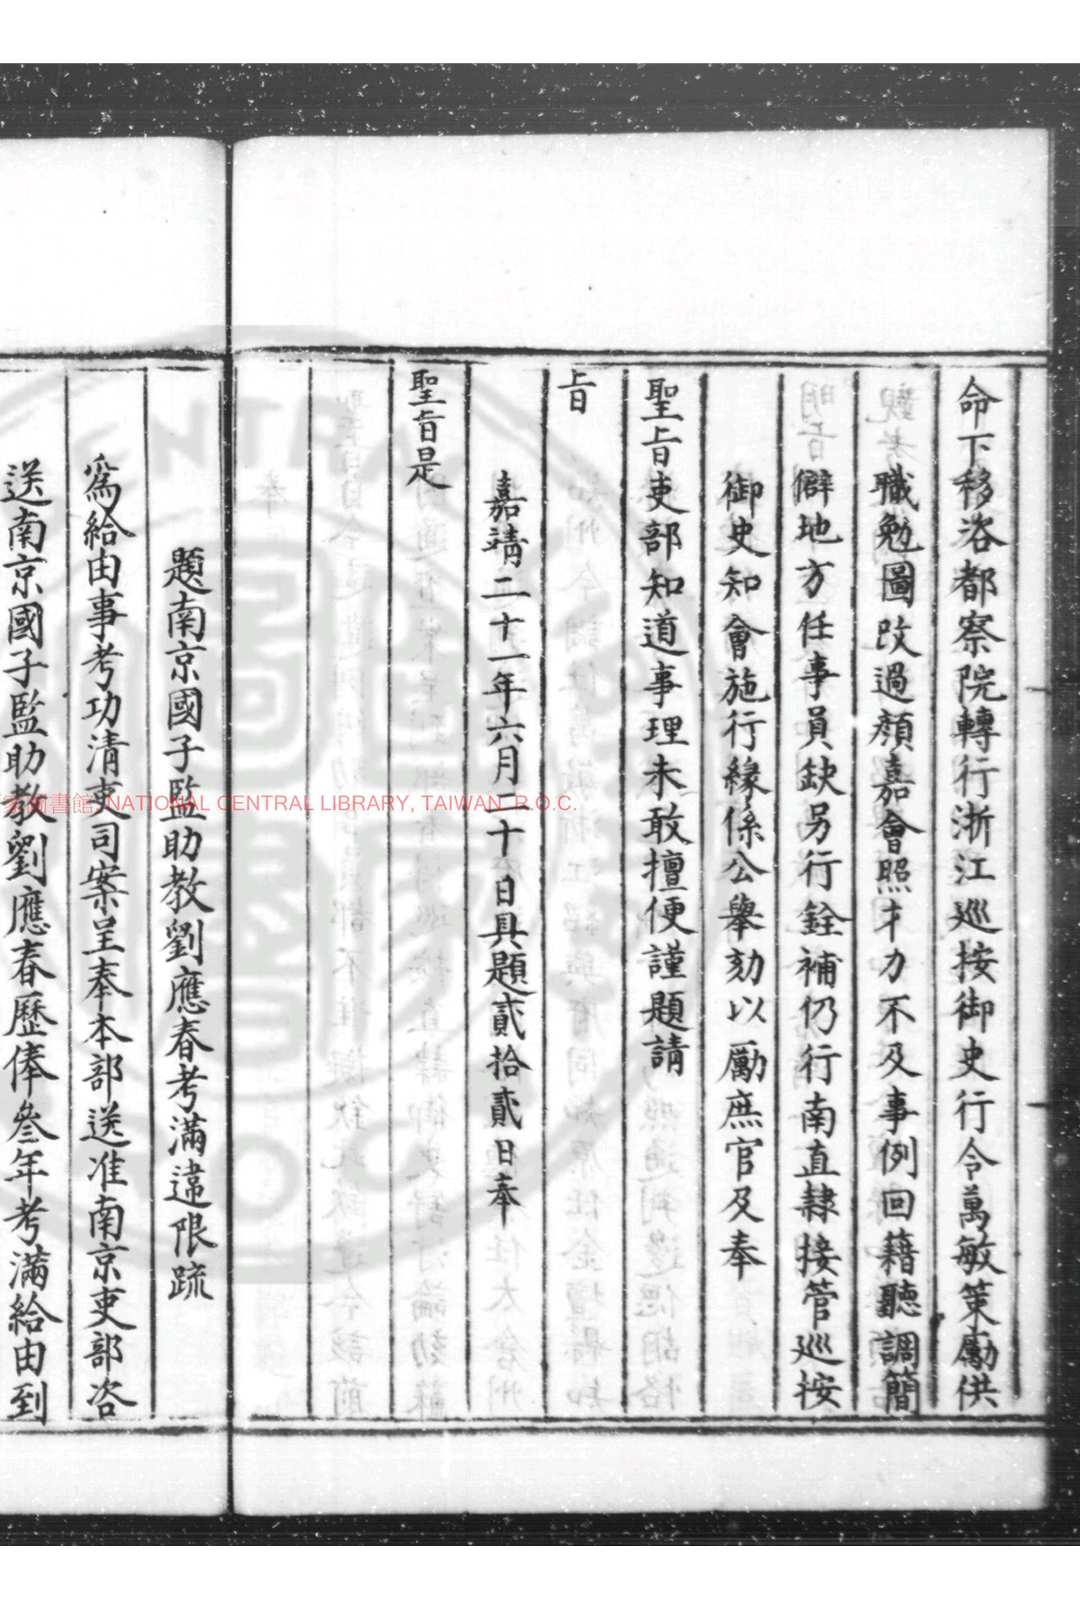 命下移咨都察院轉行浙江巡按御史行令萬敏策勵供
職勉圖改過顏嘉會照才力不及事例回籍聽調簡
僻地方任事員缺另行銓補仍行南直隸接管巡按
御史知會施行緣係公舉劾以勵庶官及奉
聖旨吏部知道事理未敢擅便謹題請
旨
嘉靖二十一年六月二十日具題貳拾貳日奉
聖旨是
題南京國子監助教劉應春考滿違限疏
為給由事考功清吏司案呈奉本部送准南京吏部咨
送南京國子監助教劉應春歷俸叄年考滿給由到
圖書館, NATIONAL CENTRAL LIBRARY, TAIWAN R.O.C.